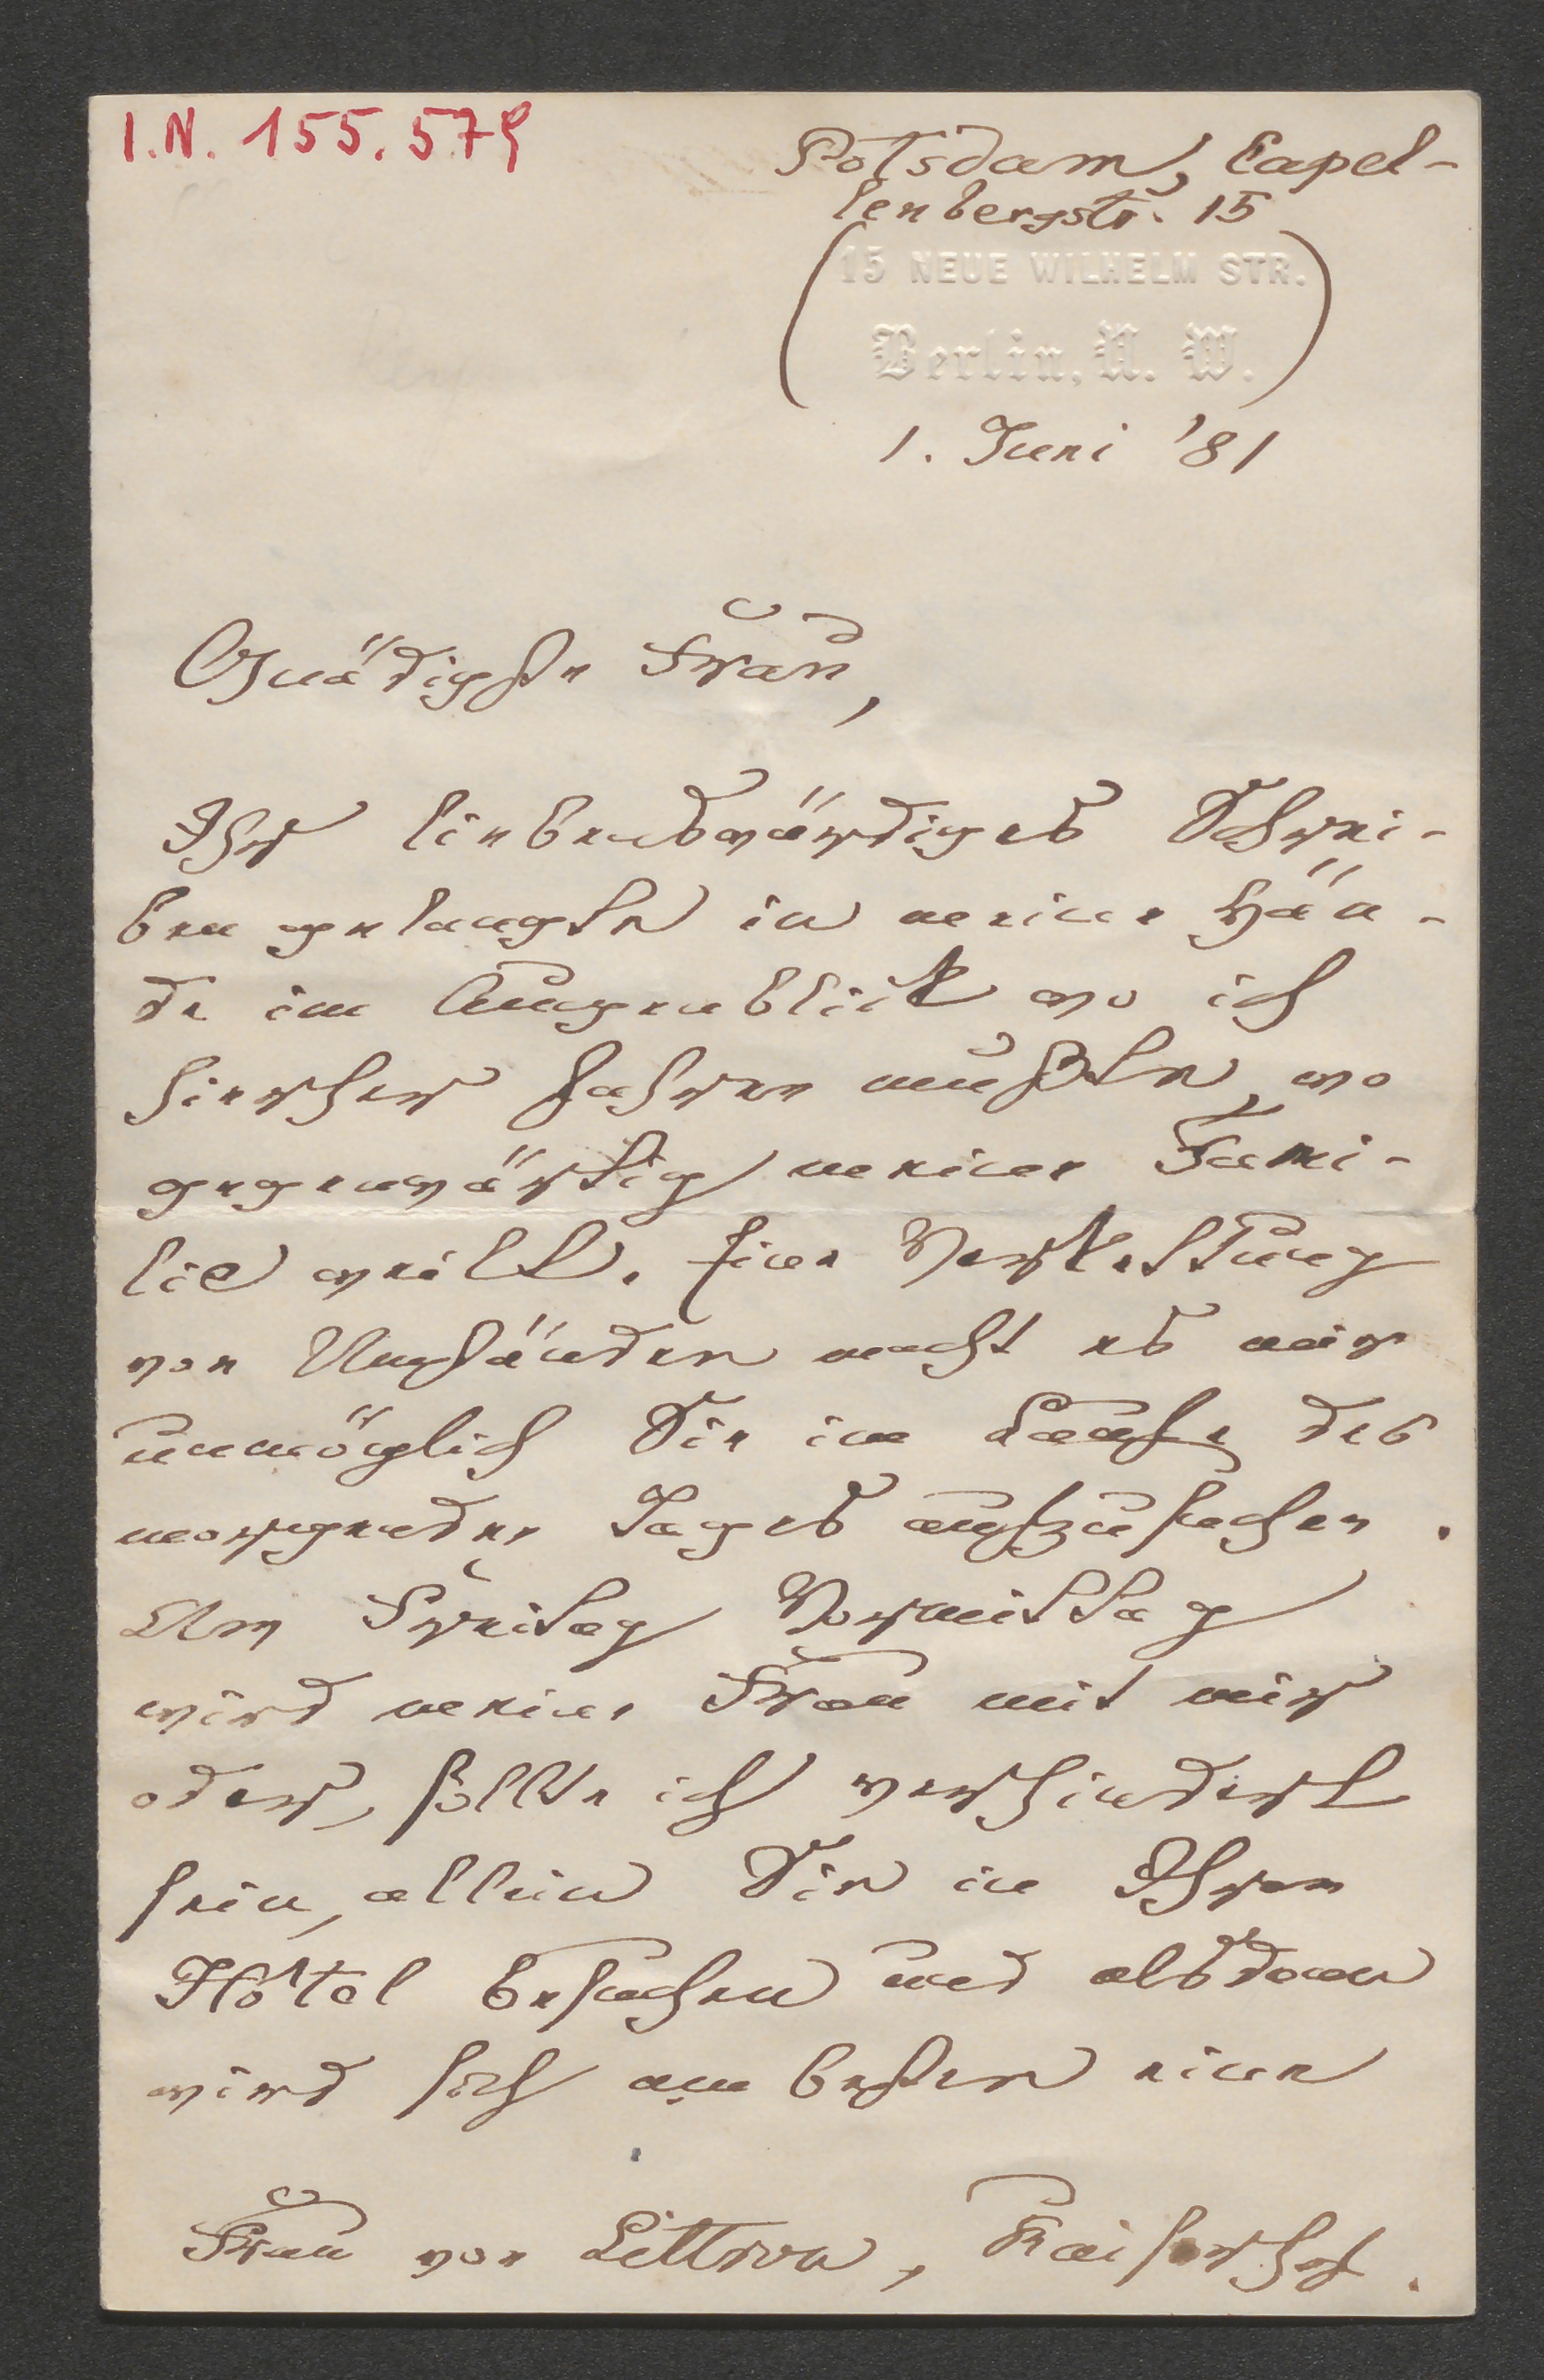 I.N. 155.579
Potsdam, Capel-
lenbergstr. 15
15 NEUE WILHELM STR.
Berlin, N. W.
1. Juni '81
Gnädigste Frau,
Ihr liebenswürdiges Schrei-
ben gelangte in meine Hän-
de im Augenblick wo ich
hierher fahren mußte, wo
gegenwärtig meine Fami-
lie weilt. Eine Verkettung
von Umständen macht es mir
unmöglich Sie im Laufe des
morgenden Tages aufzusuchen.
Am Freitag Vormittag
wird meine Frau mit mir
oder, sollte ich verhindert
sein, allein Sie in Ihrem
Hôtel besuchen und alsdann
wird sich am besten eine
Frau von Littrow, Kaiserhof.